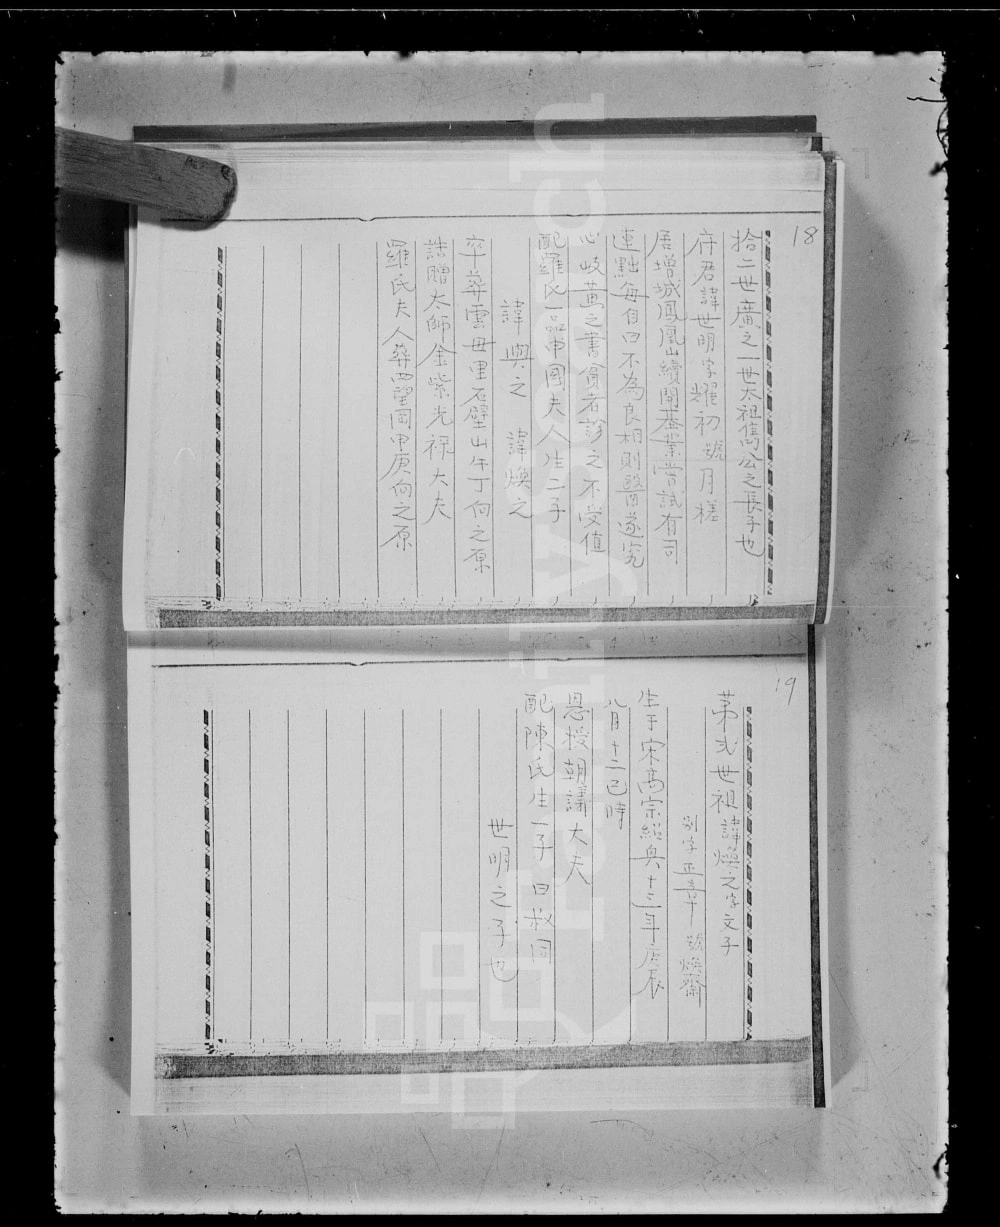 18
拾二世廣之一世太祖雋公之長子也
府君諱世明字耀初號月槎
居增城鳳凰山續開基業嘗試有司
連黜每自曰不為良相則醫遂究
心岐黃之書貧者診之不受值
配羅氏一品甯國夫人生二子
諱興之 諱煥之
卒葬雲母里石壁山午丁向之原
誥贈太師金紫光祿大夫
羅氏夫人葬四望岡甲庚向之原
19
第弍世祖諱煥之字文子
別字正喜 號煥齋
生于宋高宗紹興十三年庚辰
八月十二巳時
恩授朝議大夫
配陳氏生一子曰叔同
世明之子也
familysearch